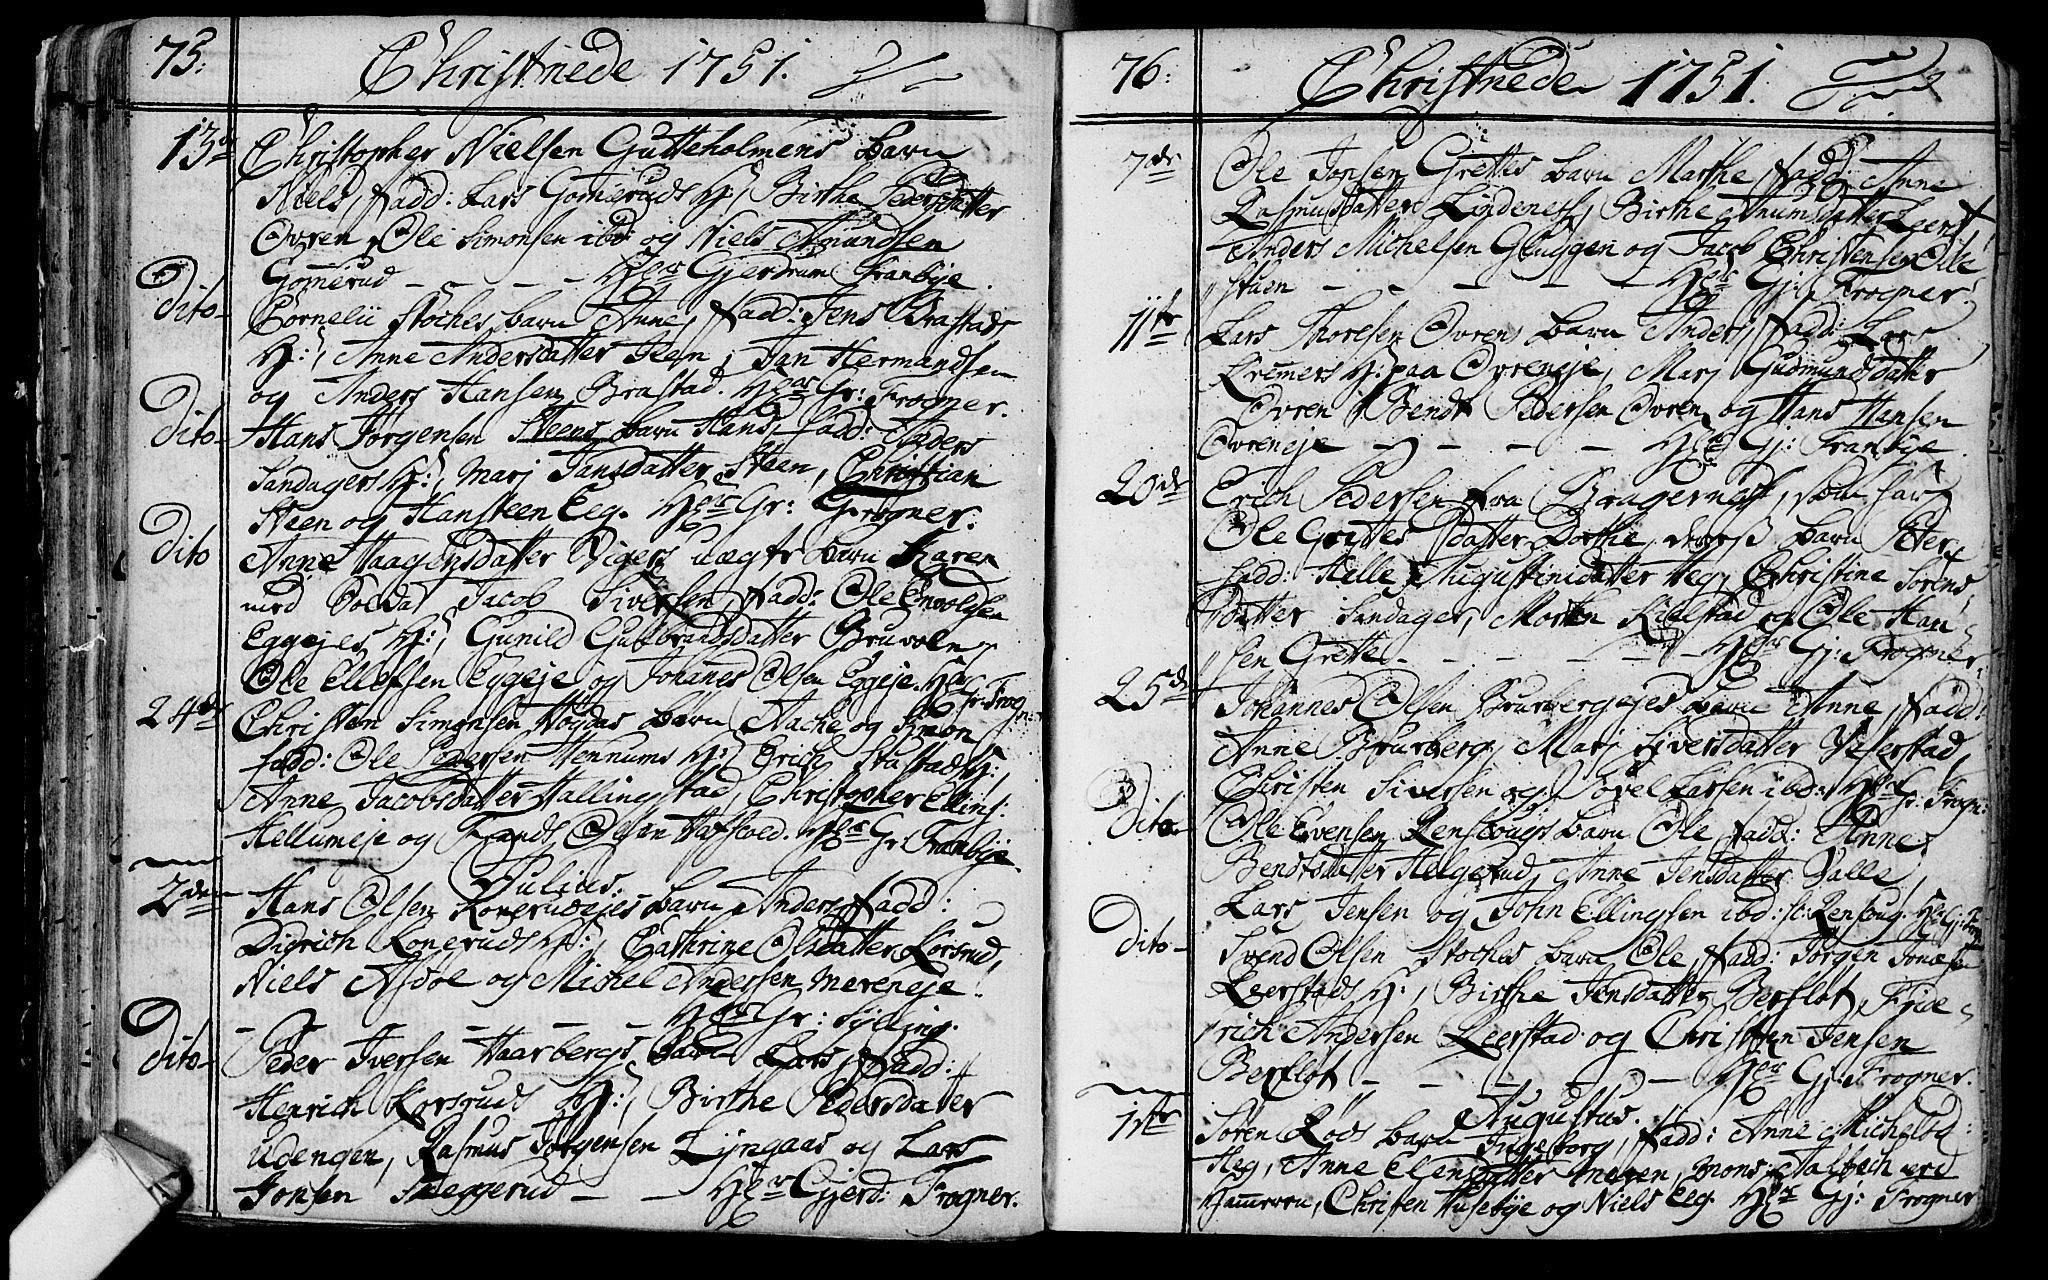 75.
Christnede 1751.
13de Christopher Nielsen Gutteholmens barn
Niels, Fadd: Lars Gomeruds H:, Birthe Pedersdatter
Ovren, Ole Simonsen ibd: og Niels Amundsen
Gomerud - - - - Hr Gjerdrum Tranbye.
Dito- Cornelii Stoches barn Anne, Fadd: Jens Brastads
H:, Anne Andersdatter Teen, Jan Hermandsen
og Anders Hansen Brastad. Hr Gr: Frogner.
Dito- Hans Jorgensen Steens barn Hans, fadd: Anders
Sandagers H:, Marj Jansdatter Steen, Christian
Steen og Hans Steen Eeg. Hr Gr: Frogner.
Dito Anne Haagensdatter uægte barn Karen
med Soldat Jacob Siversen, Fadd: Ole Envoldsen
Eggejes H:, Gunild Gulbrandsdatter
Ole Ellefsen Eggeje og Johanes Olsen Eggeje. Hr
Gr: Frogn:
24de Christen Simonsen barn Aache og Simon
fadd: Ole Pedersen Hennums H:, Erich Stustads H:
Anne Jacobsdatter Hallingstad, Christopher Ellings:
Hellumeje og Olsen Hafsted. Hr Gr Tranbye
Julius.
2den Hans Olsen Konerudejes barn Anders Fadd:
Didrich Koneruds H:, Cathrine Olsdatter Korsrud,
Niels Asdøl og Michel Andersen Mereneje.
- - - - - Hr Gr: Sylling.
Dito- Peder Iversen Haarbergs barn Lars, Fadd:
Henrich Korsruds H:, Birthe Pedersdatter
Udengen, Rasmus Jorgensen Lyngaas og Lars
Jonsen Skeggerud - - Hr Gjerd: Frogner.
76:
Christnede 1751.
7de Ole Jonsen Grettes barn Marthe, Fadd: Anne
Rasmusdatter Lindenes, Birthe
Anders Michelsen Gluggen og Jacob Christensen Olle
stuen - - - - - Hr Gj: Frogner.
11te Lars Thoresen Ovrens barn Anders, Fadd: Lars
Kremers H: paa Ovreneje, Marj Gudmundsdatter
Ovren, Bendt Pedersen Ovren og Hans Hansen
Ovreneje - - - - Hr Gj: Tranbye.
20de Erich Pedersen fra Bragernes, som har
Ole Grettes datter Dorthe, deres barn Peter,
fadd: Helle Augustinidatter Heg, Christine Sorens
datter Sandager, Morten Kielstad og Ole Han-
sen Grette - - - - - Hr Gj: Frogner.
25de Johannes Olsen Brurbergejes barn Anne, Fadd:
Anne Brurberg, Marj Siversdatter Veferstad,
Christen Siversen og Povel Larsen ibd: Hr
Gr: Frogn:
Dito- Ole Evensen Renskougs barn Ole, Fadd: Anne
Bendtsdatter Helgerud, Anne Jensdatter Valle,
Lars Jensen og John Ellingsen ibd: st: Renskoug. Hr Gj: Frogn
Dito- Svend Olsen Stoches barn Ole, Fadd: Jorgen Jonæsen
Leerstads H:, Birthe Jensdatter Berfløt, Fride-
rich Andersen Leerstad og Christen Jensen
Berfløt - - - - - Hr Gj: Frogner.
Augustus.
1te Soren Røds barn Ingeborg, Fadd: Anne Michelsd:
Heg, Anne Ellensdatter Meren, Mons Aalbech ved
Hammeren, Christen Husebye og Niels Eeg. Hr Gj: Frogner